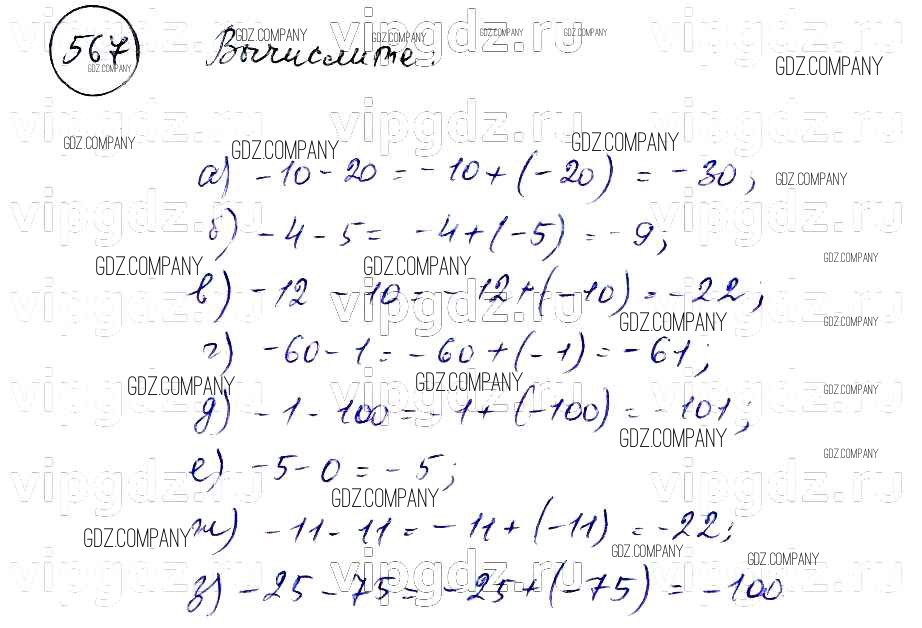 567 Вычислите:
а) -10-20 = -10+(-20) = -30;
б) -4-5 = -4+(-5) = -9;
в) -12-10 = -12+(-10) = -22;
г) -60-1 = -60+(-1) = -61;
д) -1-100 = -1+(-100) = -101;
е) -5-0 = -5;
ж) -11-11 = -11+(-11) = -22;
з) -25-75 = -25+(-75) = -100
GDZ.COMPANY
vipgdz.ru